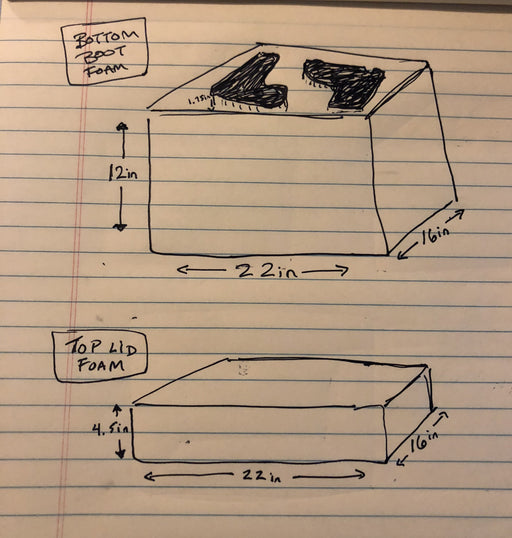 BOTTOM
BOOT
FOAM
1.75in
12in
16in
22in
TOP LID
FOAM
4.5in
16in
22in